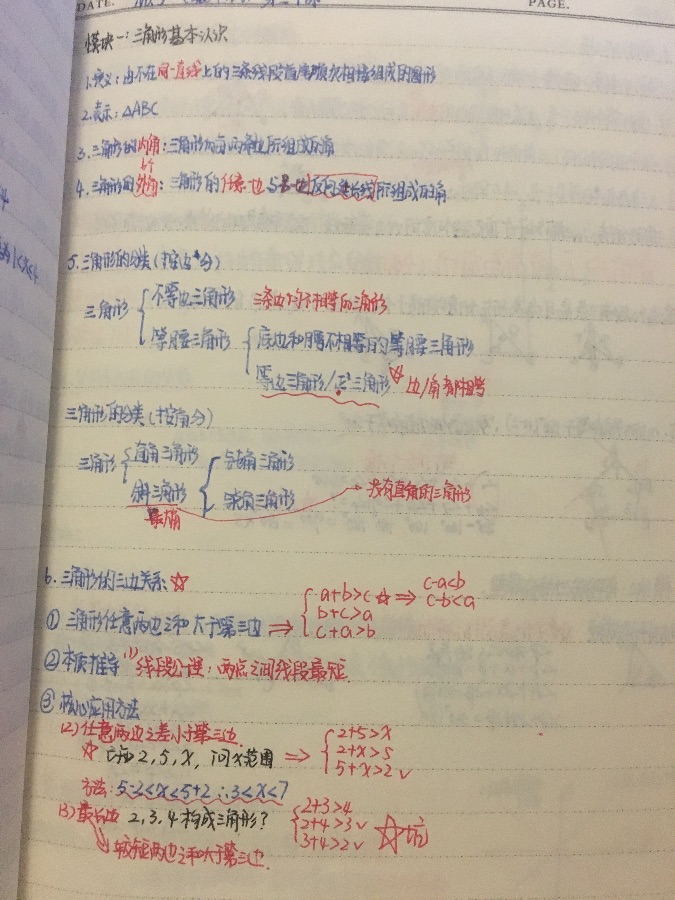 DATE.
PAGE.
模块一:三角形基本认识
1.定义:由不在同一直线上的三条线段首尾顺次相接组成的图形
2.表示:△ABC
3.三角形的内角:三角形内每两条边所组成的角
4.三角形的外角:三角形的任意一边与另一边反向延长线所组成的角
5.三角形的分类(按边分)
三角形 不等边三角形 三条边均不相等的三角形
等腰三角形 底边和腰不相等的等腰三角形
等边三角形/正三角形 ☆边/角都相等
三角形的分类(按角分)
三角形 直角三角形
斜三角形 钝角三角形
锐角三角形 没有直角的三角形
6.三角形的三边关系☆
①三角形任意两边之和大于第三边 ⇒ a+b>c☆ ⇒ c-a<b
b+c>a c-b<a
c+a>b
②本质推导 (1)线段公理:两点之间线段最短
③核心应用方法
(2)任意两边之差小于第三边.
☆ 三边2,5,x,问x范围 ⇒ 2+5>x
2+x>5
5+x>2✓
方法:5-2<x<5+2∴3<x<7
(3) 2,3,4构成三角形? 2+3>4
2+4>3✓ ☆坑
3+4>2✓
较短两边之和大于第三边.